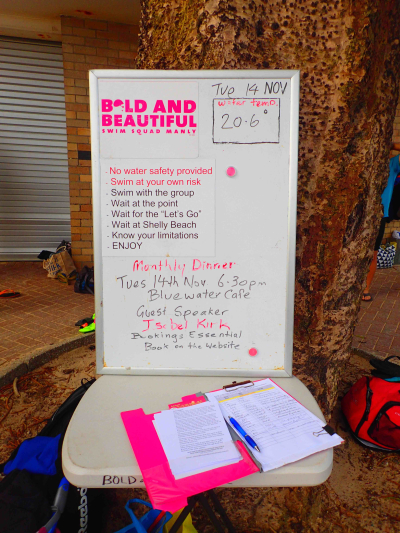 BOLD AND
BEAUTIFUL
SWIM SQUAD MANLY
Tue 14 NOV
water temp.
20.6°
No water safety provided
Swim at your own risk
Swim with the group
Wait at the point
Wait for the "Let's Go"
Wait at Shelly Beach
Know your limitations
ENJOY
Monthly Dinner
Tues 14th Nov 6.30pm
Bluewater Cafe
Guest Speaker
Isabel Kirk
Bookings Essential
Book on the Website
BOLD